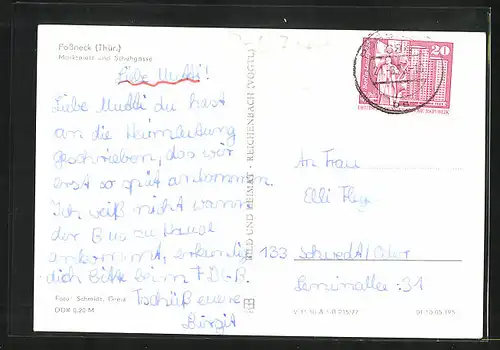 Pößneck (Thür.)
Marktplatz und Schuhgasse
Liebe Mutti!
Liebe Mutti du hast
an die Heimleitung
geschrieben, das wir
erst so spät ankommen.
Ich weiß nicht wann
der Bus zu Hause
ankommt, erkundig
dich Bitte beim FDGB.
Tschüß eure
Birgit
Foto: Schmidt, Greiz
DDR 0,20 M
BILD UND HEIMAT · REICHENBACH (VOGTL)
20
An Frau
Elli
133 Schwedt/Oder
Leninallee 31